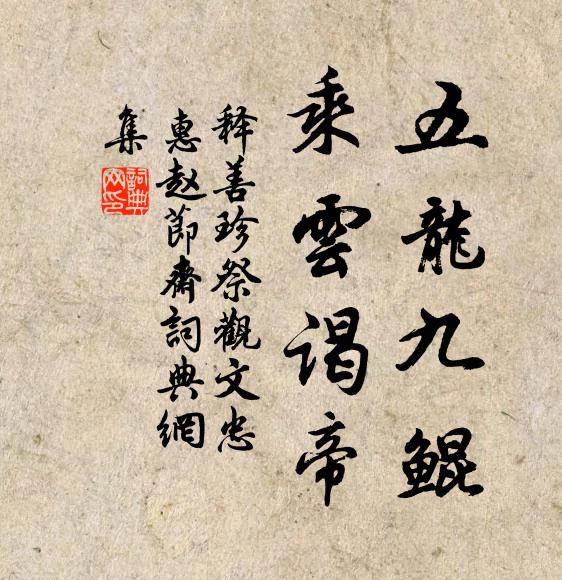 五龍九鯤
乘雲謁帝
释善珍祭觀文忠
惠赵節齋詞典網
集
詞典
网印